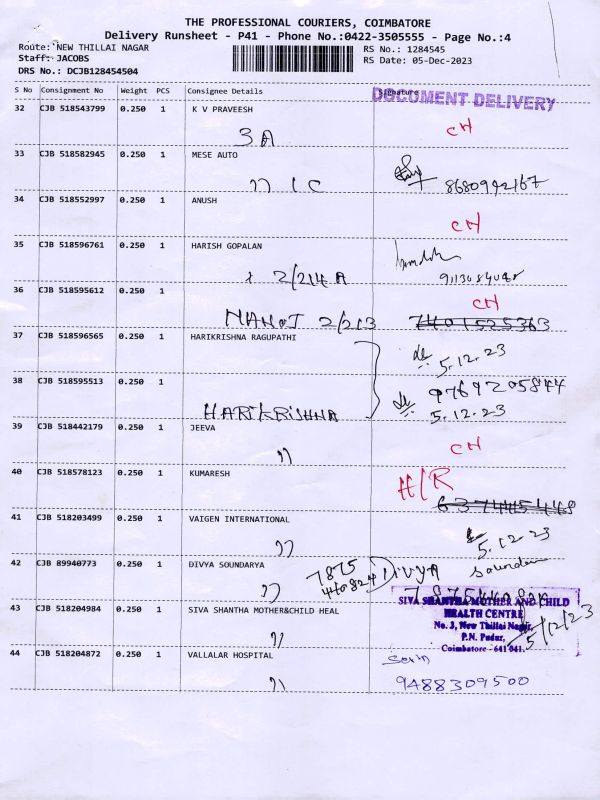 THE PROFESSIONAL COURIERS, COIMBATORE
Delivery Runsheet - P41 - Phone No.:0422-3505555 - Page No.:4
Route: NEW THILLAI NAGAR RS No.: 1284545
Staff: JACOBS RS Date: 05-Dec-2023
DRS No.: DCJB128454504
S No Consignment No Weight PCS Consignee Details Signature
DOCUMENT DELIVERY
32 CJB 518543799 0.250 1 K V PRAVEESH
3A CH
33 CJB 518582945 0.250 1 MESE AUTO
1C
34 CJB 518552997 0.250 1 ANUSH
CH
35 CJB 518596761 0.250 1 HARISH GOPALAN
2/214 A
36 CJB 518595612 0.250 1 CH
MANOJ 2/213 7401525363
37 CJB 518596565 0.250 1 HARIKRISHNA RAGUPATHI
5.12.23
38 CJB 518595513 0.250 1 9769205844
HARIKRISHNA 5.12.23
39 CJB 518442179 0.250 1 JEEVA
CH
40 CJB 518578123 0.250 1 KUMARESH
H/R
41 CJB 518203499 0.250 1 VAIGEN INTERNATIONAL
5.12.23
42 CJB 89940773 0.250 1 DIVYA SOUNDARYA
7875 DIVYA
410824
43 CJB 518204984 0.250 1 SIVA SHANTHA MOTHER&CHILD HEAL
SIVA SHANTHA MOTHER AND CHILD
HEALTH CENTRE
No. 3, New Thillai Nagar,
P.N. Pudur,
Coimbatore - 641 041.
5/12/23
44 CJB 518204872 0.250 1 VALLALAR HOSPITAL
9488309500